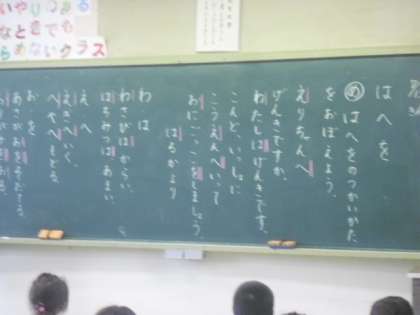 いやりのある
らめないクラス
はへを
め はへをのつかいかた
をおぼえよう。
えりちゃんへ
げんきですか。
わたしはげんきです。
こんど、いっしょに
こうえんへいって
おにごっこをしましょう。
はるかより
わ は
わさびはからい。
はちみつはあまい。
え へ
えきへいく。
へやへもどる。
お を
あさがおをそだてる。